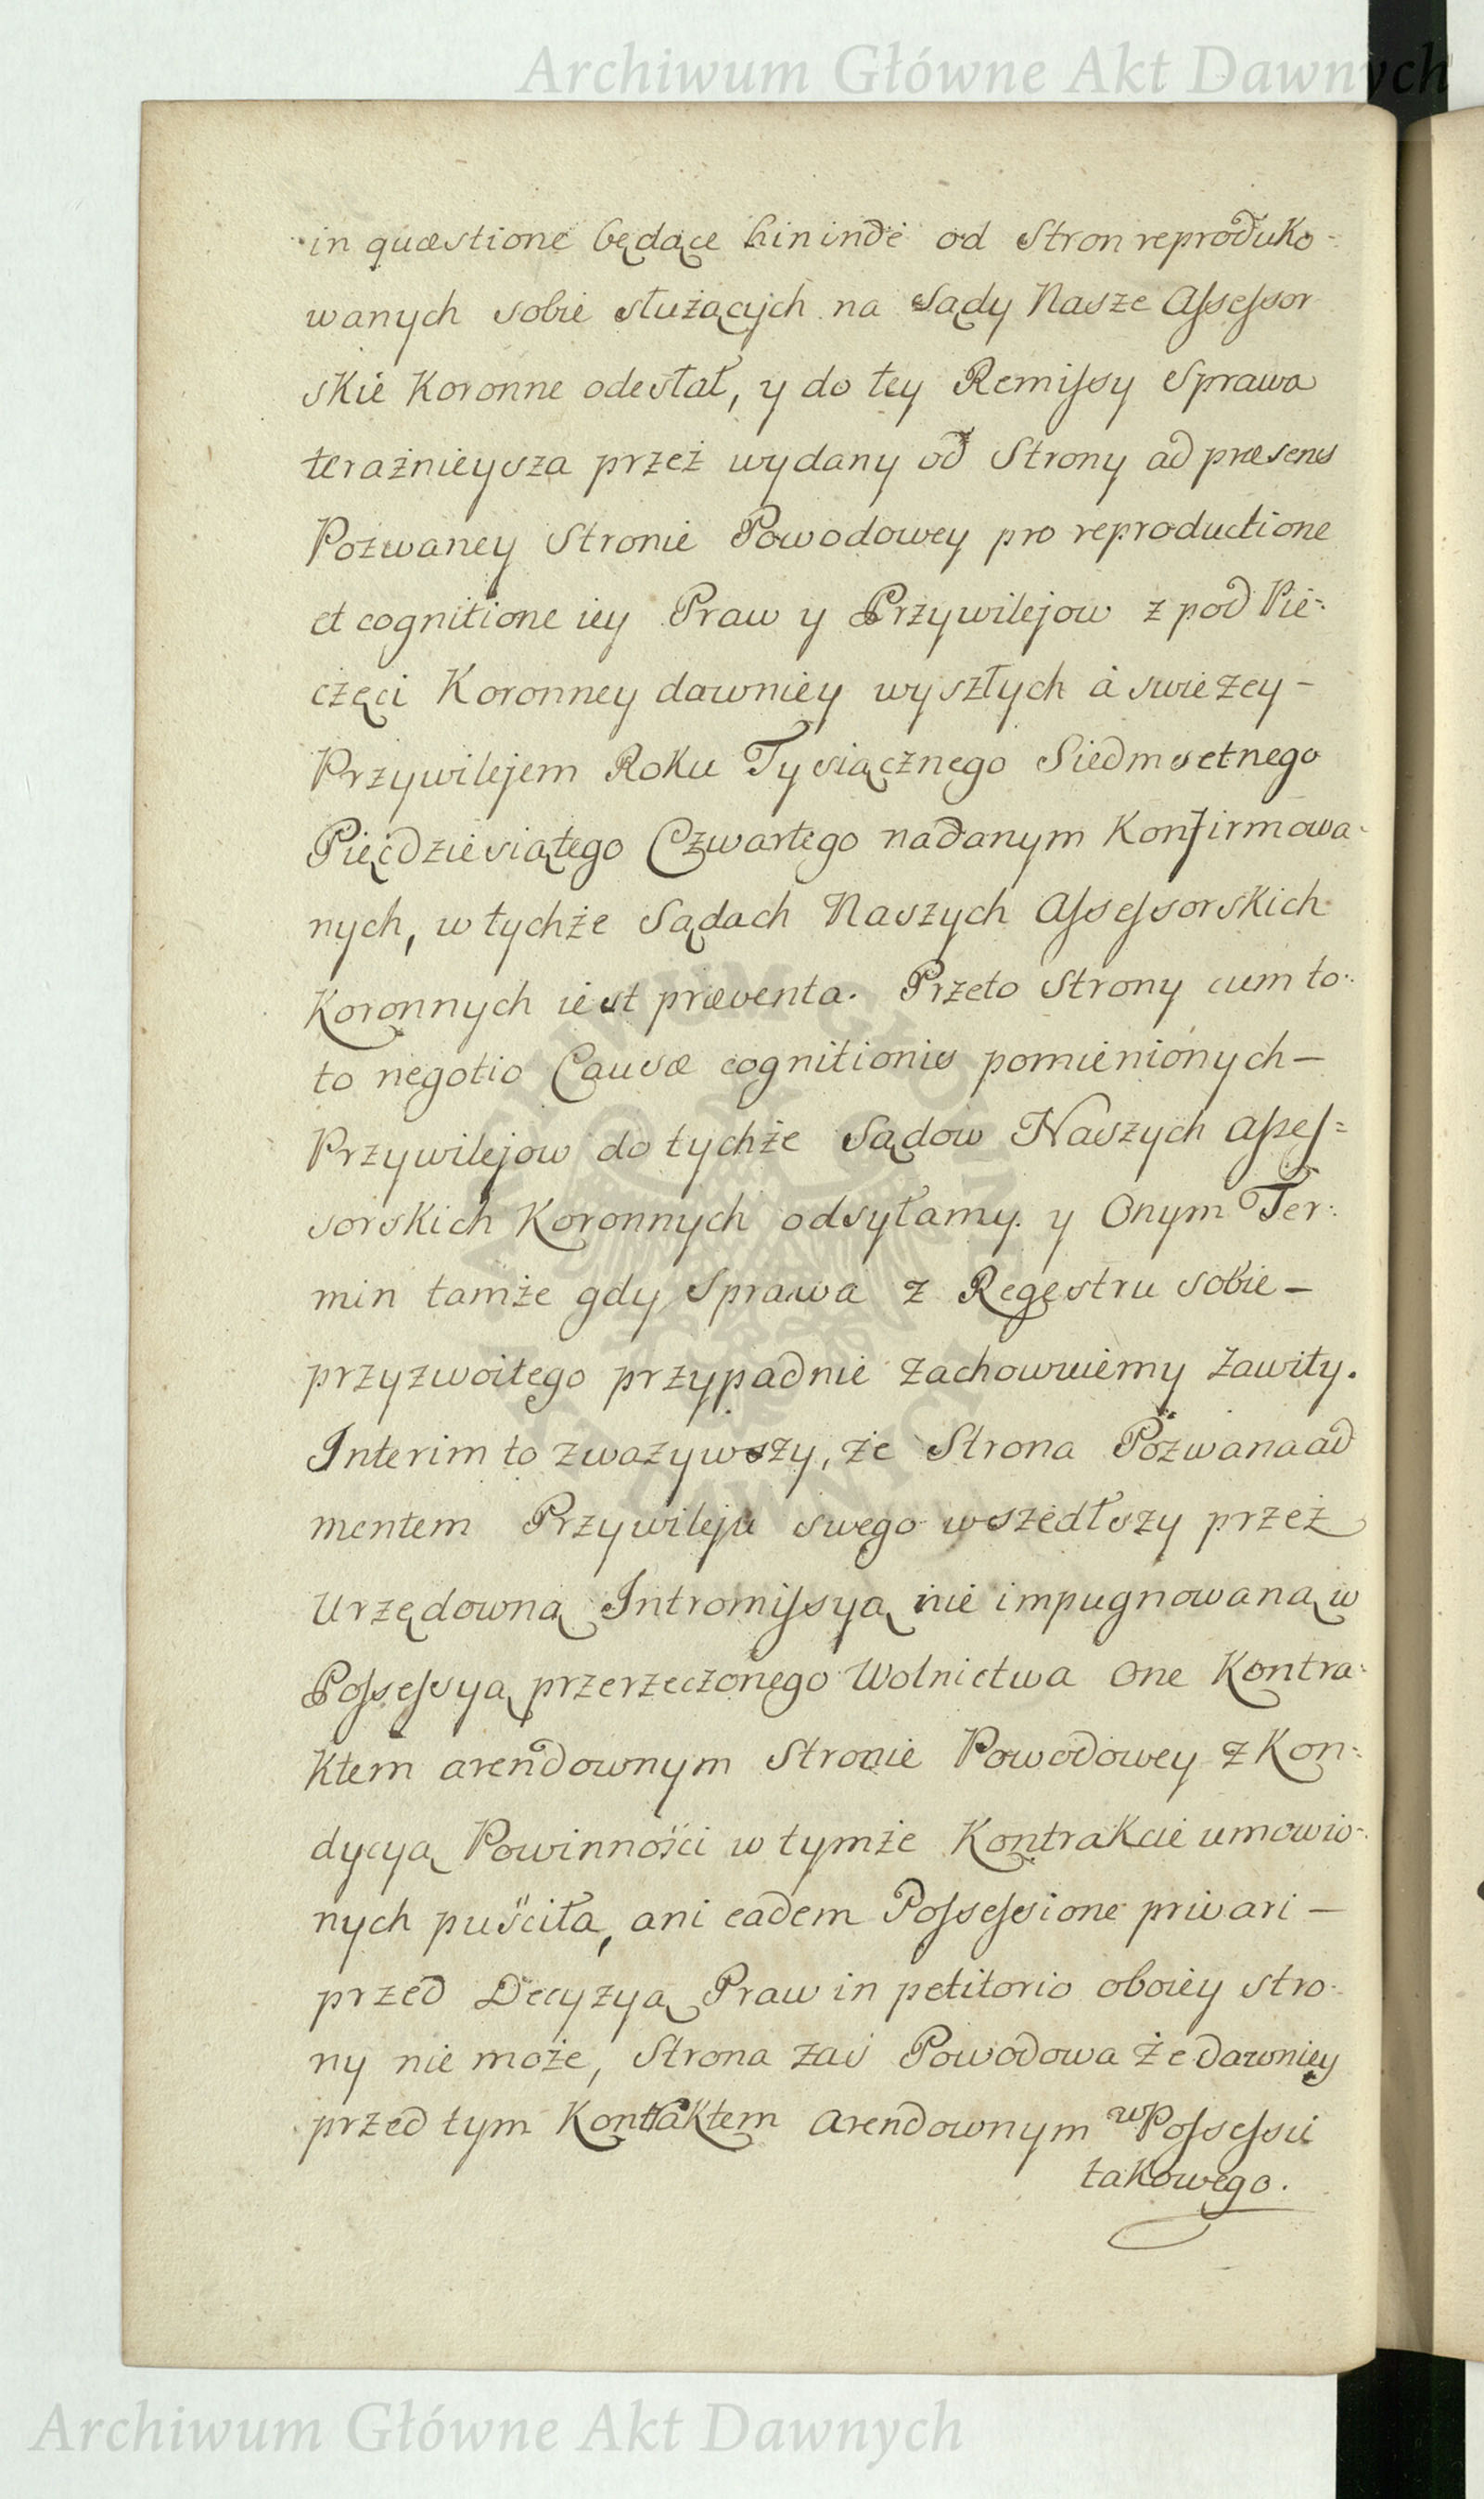 Archiwum Główne Akt Dawnych
in quæstione będące hininde od Stron reproduko-
wanych sobie służących na Sądy Nasze Assessor
skie Koronne odesłał, y do tey Remissy Sprawa
teraźnieysza przez wydany od Strony ad præsens
Pozwaney Stronie Powodowey pro reproductione
et cognitione iey Praw y Przywilejow z pod Pie-
częci Koronney dawniey wyszłych á swieżey -
Przywilejem Roku Tysiącznego Siedmsetnego
Pięćdziesiątego Czwartego nadanym Konfirmowa-
nych, w tychże Sądach Naszych Assessorskich
Koronnych iest præventa. Przeto Strony cum to-
to negotio Causæ cognitionis pomienionych -
Przywilejow do tychże Sądow Naszych Asses=
sorskich Koronnych odsyłamy y Onym Ter-
min tamże gdy Sprawa z Regestru sobie -
przyzwoitego przypadnie zachowuiemy Zawity.
Interim to zważywszy, że Strona Pozwana ad
mentem Przywileju swego wszedłszy przez
Urzędowną Intromissyą nie impugnowaną w
Possessyą przerzeczonego Wolnictwa One Kontra-
ktem arendownym Stronie Powodowey z Kon-
dycyą Powinności w tymże Kontrakcie umowio-
nych puściła, ani eadem Possessione privari -
przed Decyzyą Praw in petitorio oboiey stro-
ny nie może, Strona zaś Powodowa że dawniey
przed tym Kontraktem arendownym w Possessii
takowego.
Archiwum Główne Akt Dawnych